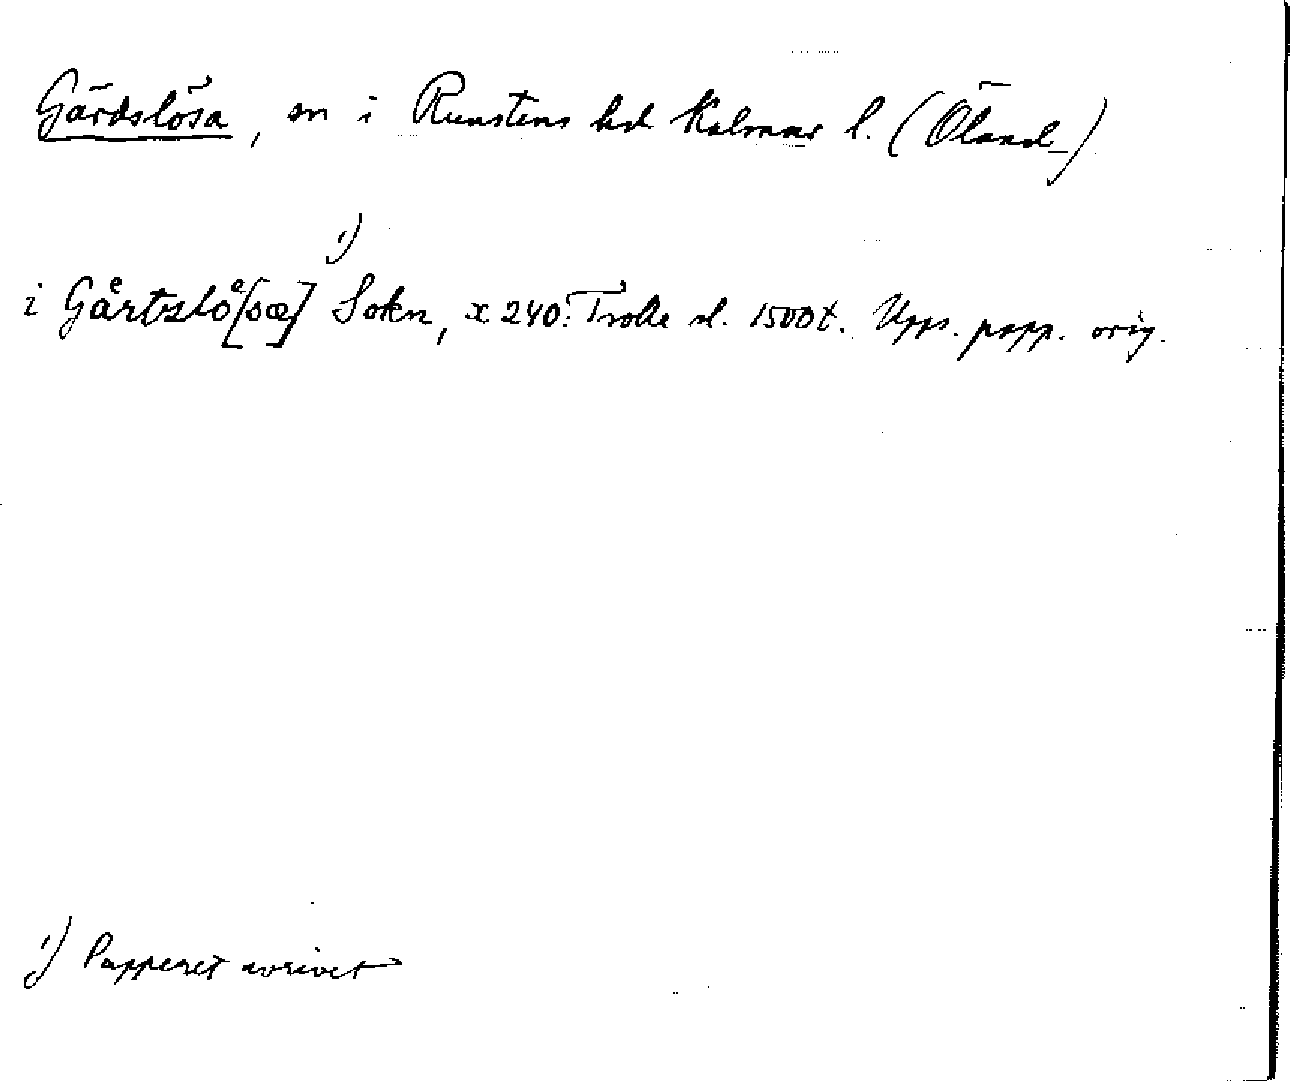 Gärdslösa, sn i Runstens hd Kalmar l. (Öland)
1)
i Gåͤrtzlöͤ[sæ] Sokn, x 240: Trolle sl. 1500 t. Upps. papp. orig.
1) Papperet avrivet